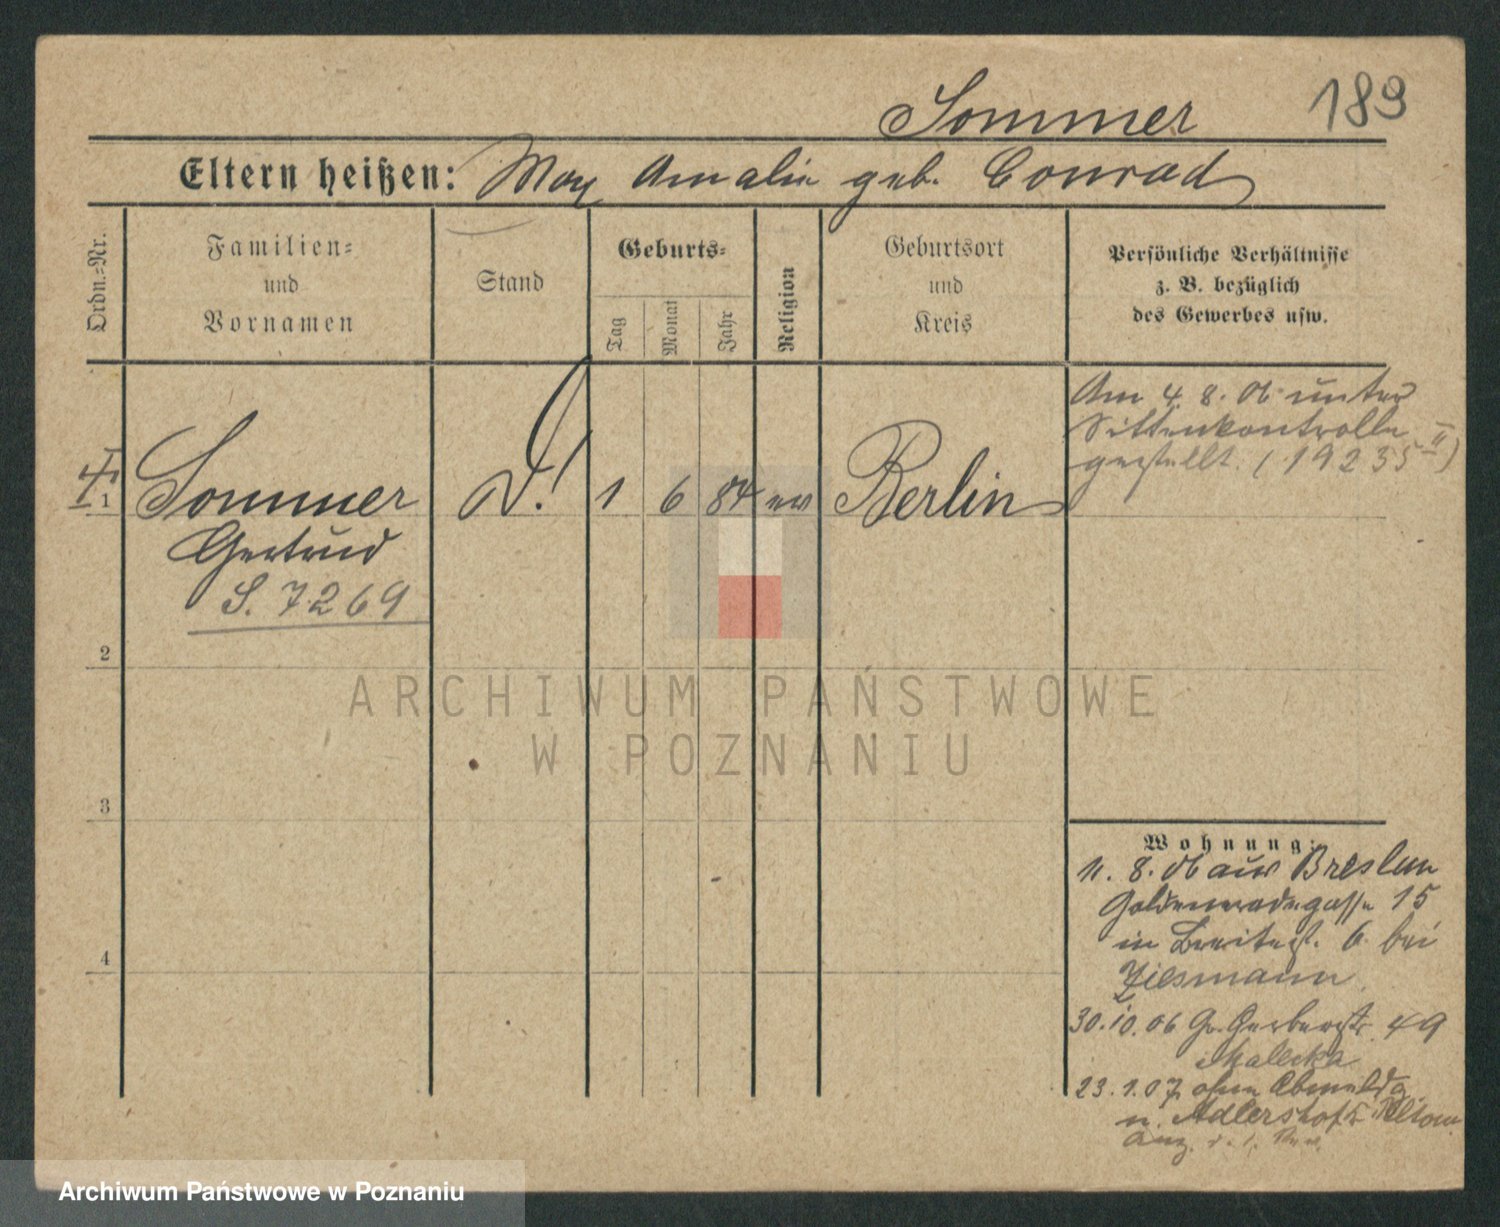 Sommer 189
Eltern heißen: Max Amalie geb. Conrad
Ordn.=Nr.
Familien=
und
Vornamen
Stand
Geburts=
Tag
Monat
Jahr
Religion
Geburtsort
und
Kreis
Persönliche Verhältnisse
z. B. bezüglich
des Gewerbes usw.
1
Sommer
Gertrud
S. 7269
1 6 84 ev
Berlin
Am 4. 8. 06 unter
Sittenkontrolle
gestellt. (19235 II)
2
3
4
Wohnung:
11. 8. 06 aus Breslau
Goldeneradegasse 15
in Breitestr. 6 bei
Ziesmann
30.10.06 Gr. Gerberstr. 49
Malecka
23.1.07 ohne Abmeldg.
n. Adlershof
Anz.
ARCHIWUM PAŃSTWOWE
W POZNANIU
Archiwum Państwowe w Poznaniu